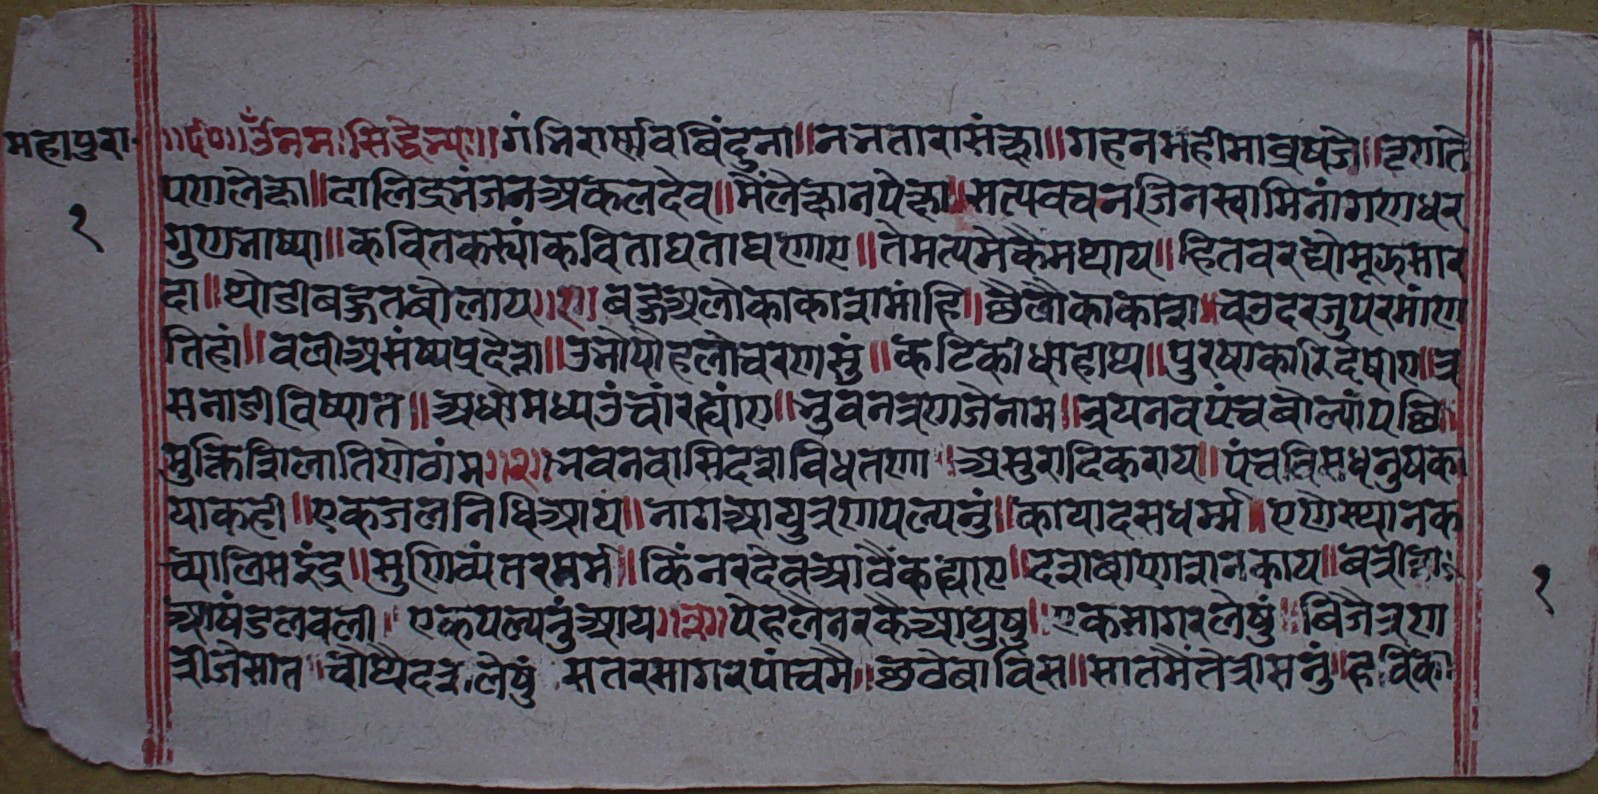 महापुरा
१
॥६०॥ ॐनमःसिद्धेभ्यः॥ गंभिरार्स्मवबिंदुना॥ नभतारासंख्या॥ गहनमहीमाव्रषजै॥ तृणते
पणलेख्या॥ दालिद्रभंजनअकलदेव॥ मैंलेख्यानपेख्या॥ सत्यवचनजिनस्वामिनांगणधर
गुणभाष्या॥ कवितकस्यांकविताघताघणाए॥ तेमत्यमेकैमथाय॥ हितवरद्योमूझसार
दा॥ थोडीबहूतबोलाय॥१॥ बहूअलोकाकाशमांहि॥ छैलोकाकाश॥ चउदरजुपरमांण
तिहां॥ वलीअसंष्यप्रदेश॥ उभोपोहलोचरणसुं॥ कटिकीधाहाथ॥ पुरषाकारिदेषाए॥ त्र
सनाडीविष्यात॥ अधोमध्यउंचांरह्यांए॥ भुवनत्रणजेनाम॥ त्रयनवपंचबोल्यांपछि॥
मुक्तिशिलातिणेठांम॥२॥ भवनवासिदशविधतणा॥ असुरादिकराय॥ पंचविसधनुषका
याकही॥ एकजलनिधिआयं॥ नागआयुत्रणपल्यनुं॥ कायादसधर्म्म॥ एणेस्थानक
च्यालिसइंद्र॥ सुणिव्यंतरमर्म॥ किंनरदेवआवैंकह्याए॥ दशबाणशनकाय॥ बत्री
आषंडलवली॥ एकपल्यनुंआय॥३॥ पेहलेनरकैआयुषु॥ एकसागरलेषुं॥ बिजैत्रण
त्रीजेसात॥ चौथैदशलेषुं सतरसागरपांचमै॥ छठेबाविस॥ सातमैंतेत्रीसनुं॥ हविका
१